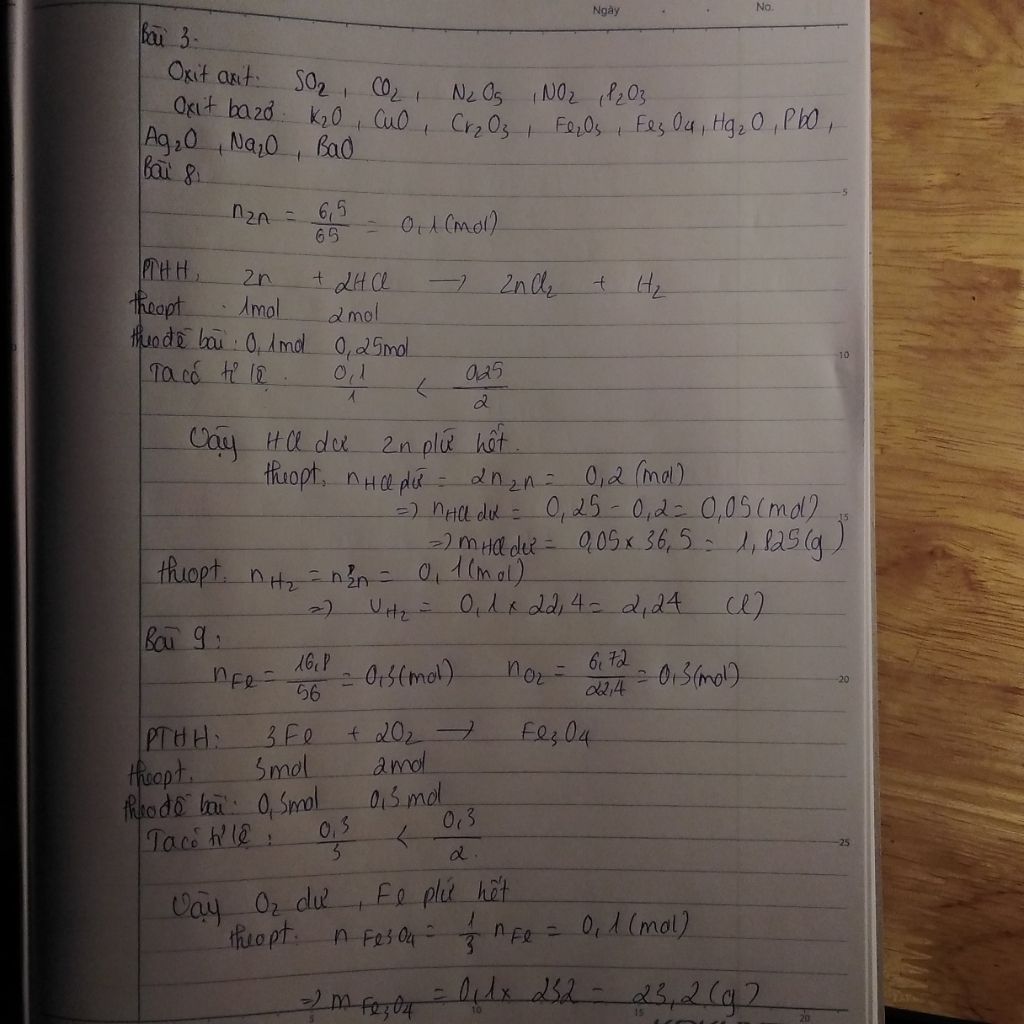 Ngày . . No.
Bài 3.
Oxit axit: SO2, CO2, N2O5, NO2, P2O3
Oxit bazơ: K2O, CuO, Cr2O3, Fe2O3, Fe3O4, Hg2O, PbO,
Ag2O, Na2O, BaO
Bài 8:
nZn = 6,5/65 = 0,1(mol)
PTHH: Zn + 2HCl → ZnCl2 + H2
theo pt: 1mol 2mol
theo đề bài: 0,1mol 0,25mol
Ta có tỉ lệ: 0,1/1 < 0,25/2
Vậy HCl dư Zn pứ hết.
theo pt: nHCl pứ = 2nZn = 0,2 (mol)
=> nHCl dư = 0,25 - 0,2 = 0,05(mol)
=> mHCl dư = 0,05 x 36,5 = 1,825(g)
theo pt: nH2 = nZn = 0,1(mol)
=> VH2 = 0,1 x 22,4 = 2,24 (l)
Bài 9:
nFe = 16,8/56 = 0,3(mol) nO2 = 6,72/22,4 = 0,3(mol)
PTHH: 3Fe + 2O2 → Fe3O4
theo pt: 3mol 2mol
theo đề bài: 0,3mol 0,3mol
Ta có tỉ lệ: 0,3/3 < 0,3/2
Vậy O2 dư, Fe pứ hết
theo pt: nFe3O4 = 1/3 nFe = 0,1(mol)
=> mFe3O4 = 0,1 x 232 = 23,2(g)